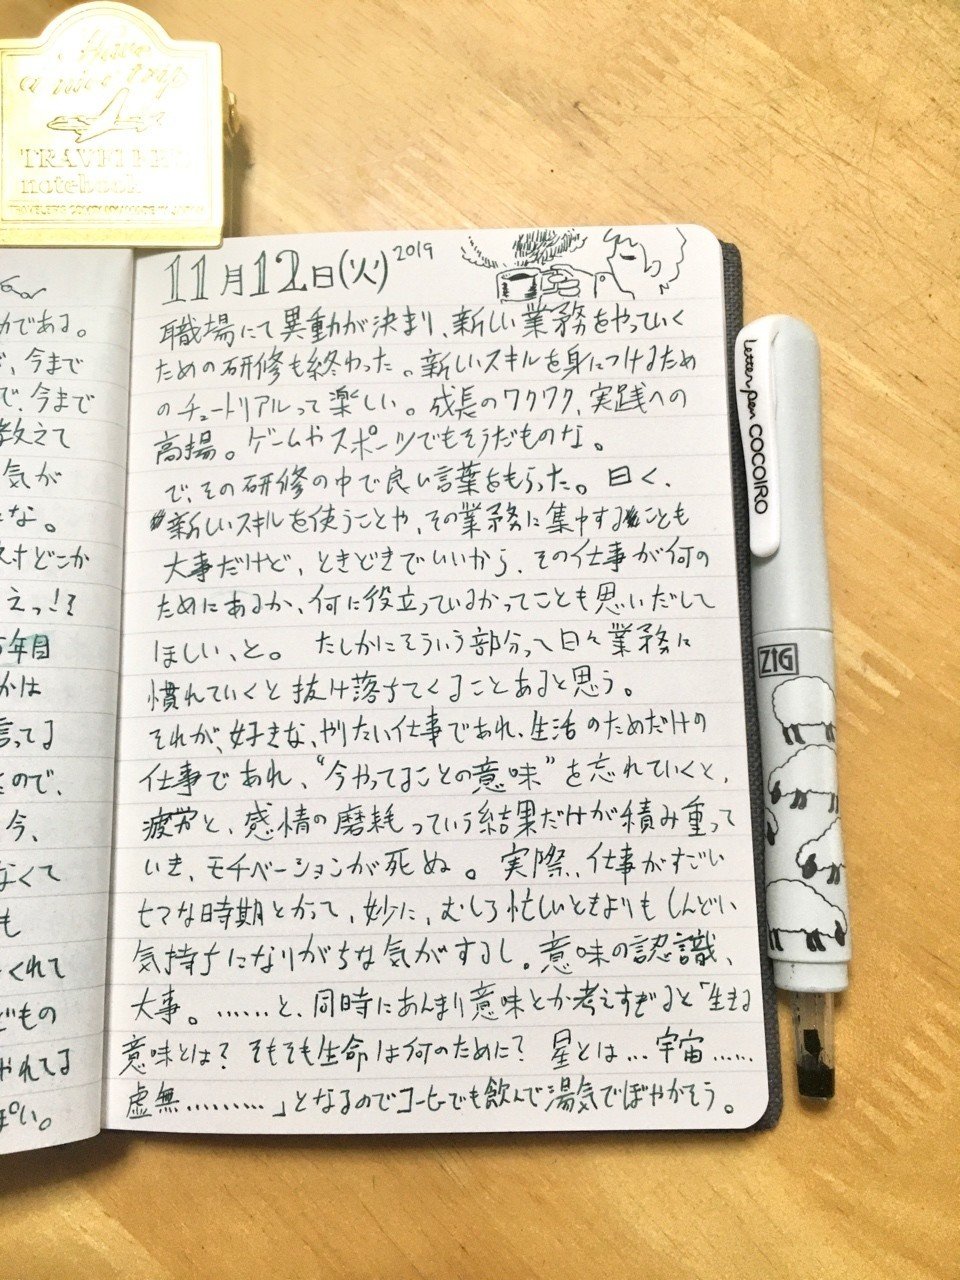 Have
a nice trip
TRAVELER'S
notebook
TRAVELER'S COMPANY MADE IN JAPAN
である。
、今まで
で、今まで
教えて
気が
な。
どこか
えっ!?
年目
かは
言ってる
ので、
今、
なくて
も
くれて
どもの
やれてる
ぽい。
11月12日(火) 2019
職場にて異動が決まり、新しい業務をやっていく
ための研修も終わった。新しいスキルを身につけるため
のチュートリアルって楽しい。成長のワクワク、実践への
高揚。ゲームやスポーツでもそうだものな。
で、その研修の中で良い言葉をもらった。曰く、
"新しいスキルを使うことや、その業務に集中することも
大事だけど、ときどきでいいから、その仕事が何の
ためにあるか、何に役立っているかってことも思いだして
ほしい、と。 たしかにそういう部分って日々業務に
慣れていくと抜け落ちてくることあると思う。
それが、好きな、やりたい仕事であれ、生活のためだけの
仕事であれ、“今やってることの意味”を忘れていくと、
疲労と、感情の磨耗っていう結果だけが積み重って
いき、モチベーションが死ぬ。 実際、仕事がすごい
ヒマな時期とかって、妙に、むしろ忙しいときよりもしんどい
気持ちになりがちな気がするし。意味の認識、
大事。……と、同時にあんまり意味とか考えすぎると「生きる
意味とは? そもそも生命は何のために? 星とは…宇宙……
虚無………」となるのでコーヒーでも飲んで湯気でぼやかそう。
letter pen COCOIRO
ZIG